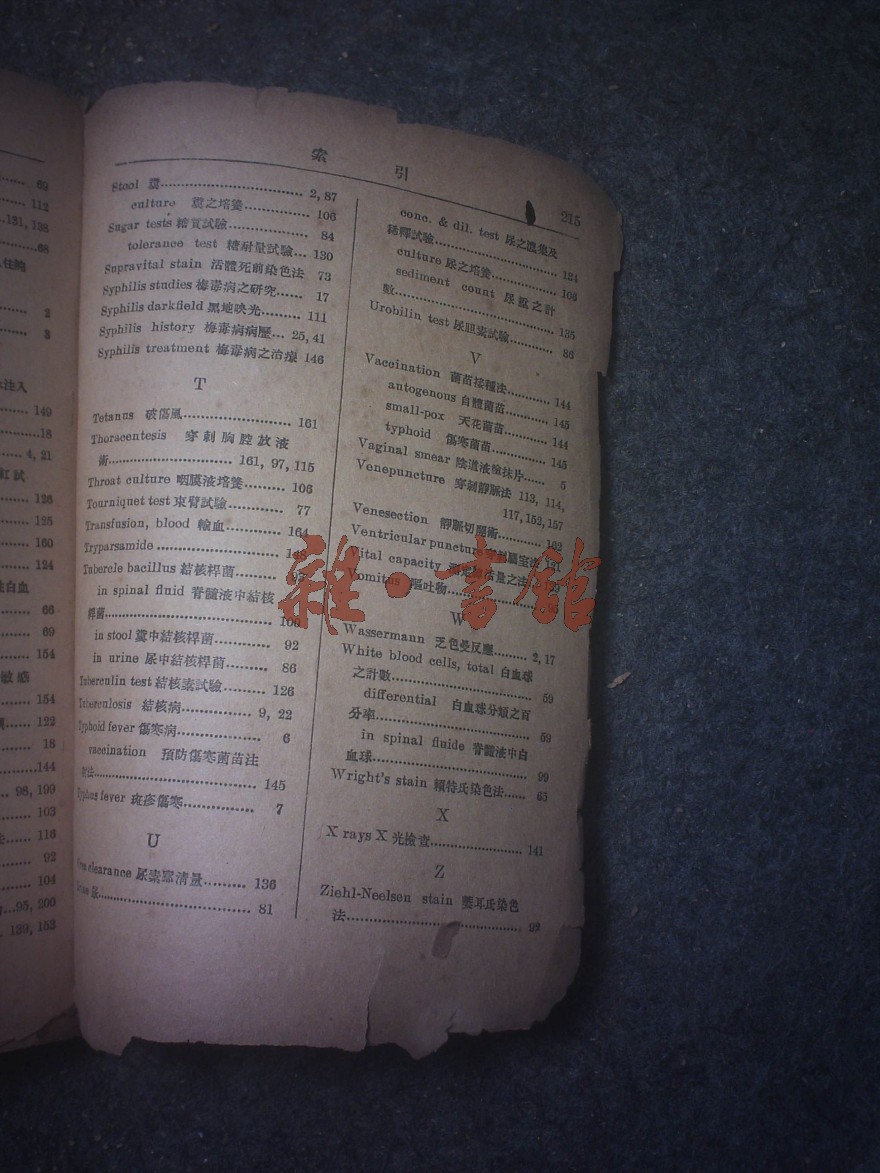 69
112
131, 138
68
2
3
注入
149
18
4, 21
126
125
160
124
白血
66
69
154
敏感
154
122
18
144
98, 199
103
116
92
104
95, 200
139, 153
索 引
215
Stool 糞 2, 87
culture 糞之培養 106
Sugar tests 糖質試驗 84
tolerance test 糖耐量試驗 130
Supravital stain 活體死前染色法 73
Syphilis studies 梅毒病之研究 17
Syphilis darkfield 黑地映光 111
Syphilis history 梅毒病病歷 25, 41
Syphilis treatment 梅毒病之治療 146
T
Tetanus 破傷風 161
Thoracentesis 穿刺胸腔放液
術 161, 97, 115
Throat culture 咽膜液培養 106
Tourniquet test 束臂試驗 77
Transfusion, blood 輸血 164
Tryparsamide
Tubercle bacillus 結核桿菌
in spinal fluid 脊髓液中結核
桿菌 100
in stool 糞中結核桿菌 92
in urine 尿中結核桿菌 86
Tuberculin test 結核素試驗 126
Tuberculosis 結核病 9, 22
Typhoid fever 傷寒病 6
vaccination 預防傷寒菌苗注
射法 145
Typhus fever 斑疹傷寒 7
U
clearance 尿素廓清量 136
尿 81
conc. & dil. test 尿之濃集及
稀釋試驗 134
culture 尿之培養 106
sediment count 尿澱之計
數 135
Urobilin test 尿胆素試驗 86
V
Vaccination 菌苗接種法 144
autogenous 自體菌苗 145
small-pox 天花菌苗 144
typhoid 傷寒菌苗 145
Vaginal smear 陰道液檢抹片 5
Venepuncture 穿刺靜脈法 113, 114,
117, 152, 157
Venesection 靜脈切開術 162
Ventricular puncture 穿刺腦室法 101
Vital capacity 量之法
Vomitus 嘔吐物
雜·書館
W
Wassermann 乏色曼反應 2, 17
White blood cells, total 白血球
之計數 59
differential 白血球分類之百
分率 59
in spinal fluide 脊髓液中白
血球 99
Wright's stain 賴特氏染色法 65
X
X rays X 光檢查 141
Z
Ziehl-Neelsen stain 婁耳氏染色
法 92